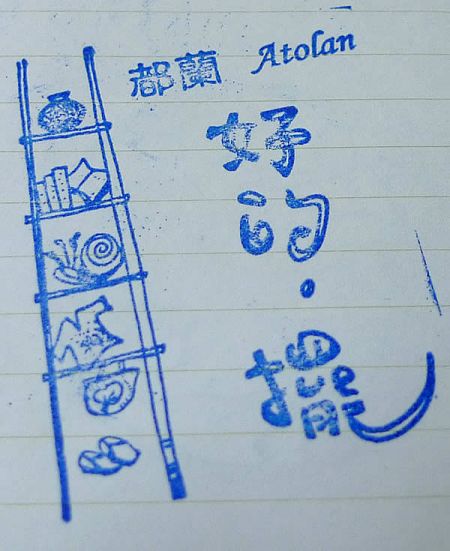 都蘭 Atolan
好
的
·
擺